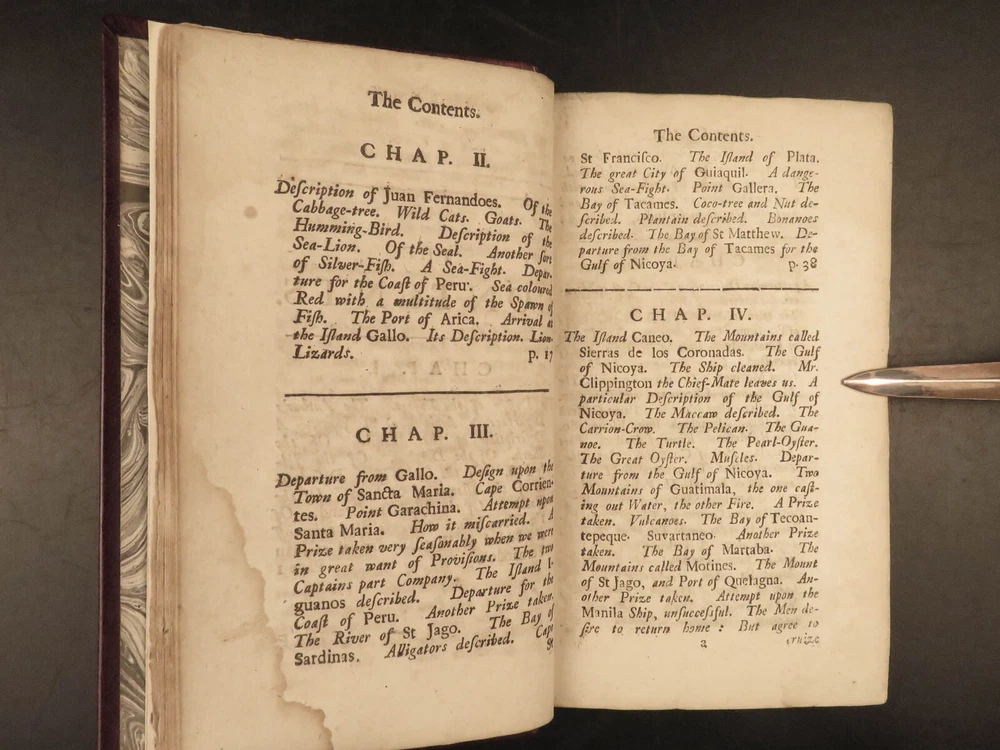 The Contents.
CHAP. II.
Deſcription of Juan Fernandoes. Of the
Cabbage-tree. Wild Cats. Goats. The
Humming-Bird. Deſcription of the
Sea-Lion. Of the Seal. Another ſort
of Silver-Fiſh. A Sea-Fight. Depar-
ture for the Coaſt of Peru. Sea coloured
Red with a multitude of the Spawn of
Fiſh. The Port of Arica. Arrival at
the Iſland Gallo. Its Deſcription. Lion-
Lizards. p. 17
CHAP. III.
Departure from Gallo. Deſign upon the
Town of Sancta Maria. Cape Corrien-
tes. Point Garachina. Attempt upon
Santa Maria. How it miſcarried. A
Prize taken very ſeaſonably when we were
in great want of Proviſions. The two
Captains part Company. The Iſland I-
guanos deſcribed. Departure for the
Coaſt of Peru. Another Prize taken.
The River of St Jago. The Bay of
Sardinas. Alligators deſcribed. Cape
St
The Contents.
St Franciſco. The Iſland of Plata.
The great City of Guiaquil. A dange-
rous Sea-Fight. Point Gallera. The
Bay of Tacames. Coco-tree and Nut de-
ſcribed. Plantain deſcribed. Bonanoes
deſcribed. The Bay of St Matthew. De-
parture from the Bay of Tacames for the
Gulf of Nicoya. p. 38
CHAP. IV.
The Iſland Caneo. The Mountains called
Sierras de los Coronadas. The Gulf
of Nicoya. The Ship cleaned. Mr.
Clippington the Chief-Mate leaves us. A
particular Deſcription of the Gulf of
Nicoya. The Maccaw deſcribed. The
Carrion-Crow. The Pelican. The Gua-
noe. The Turtle. The Pearl-Oyſter.
The Great Oyſter. Muſcles. Depar-
ture from the Gulf of Nicoya. Two
Mountains of Guatimala, the one caſt-
ing out Water, the other Fire. A Prize
taken. Vulcanoes. The Bay of Tecoan-
tepeque. Suvartaneo. Another Prize
taken. The Bay of Martaba. The
Mountains called Motines. The Mount
of St Jago, and Port of Quelagna. An-
other Prize taken. Attempt upon the
Manila Ship, unſucceſsful. The Men de-
ſire to return home: But agree to
a cruize